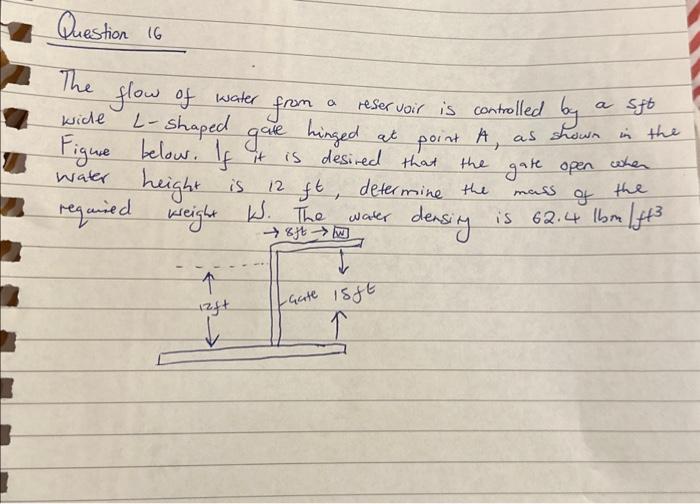 Question 16
The flow of water from a reservoir is controlled by a 5ft
wide L-shaped gate hinged at point A, as shown in the
Figure below. If it is desired that the gate open when
water height is 12 ft, determine the mass of the
required weight W. The water density is 62.4 lbm/ft3
→ 8ft → W
12ft
Gate 15ft